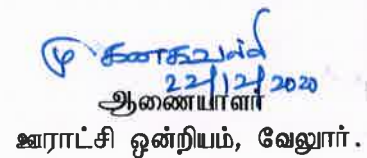 மு கனகவல்லி
22/12/2020
ஆணையாளர்
ஊராட்சி ஒன்றியம், வேலூர்.